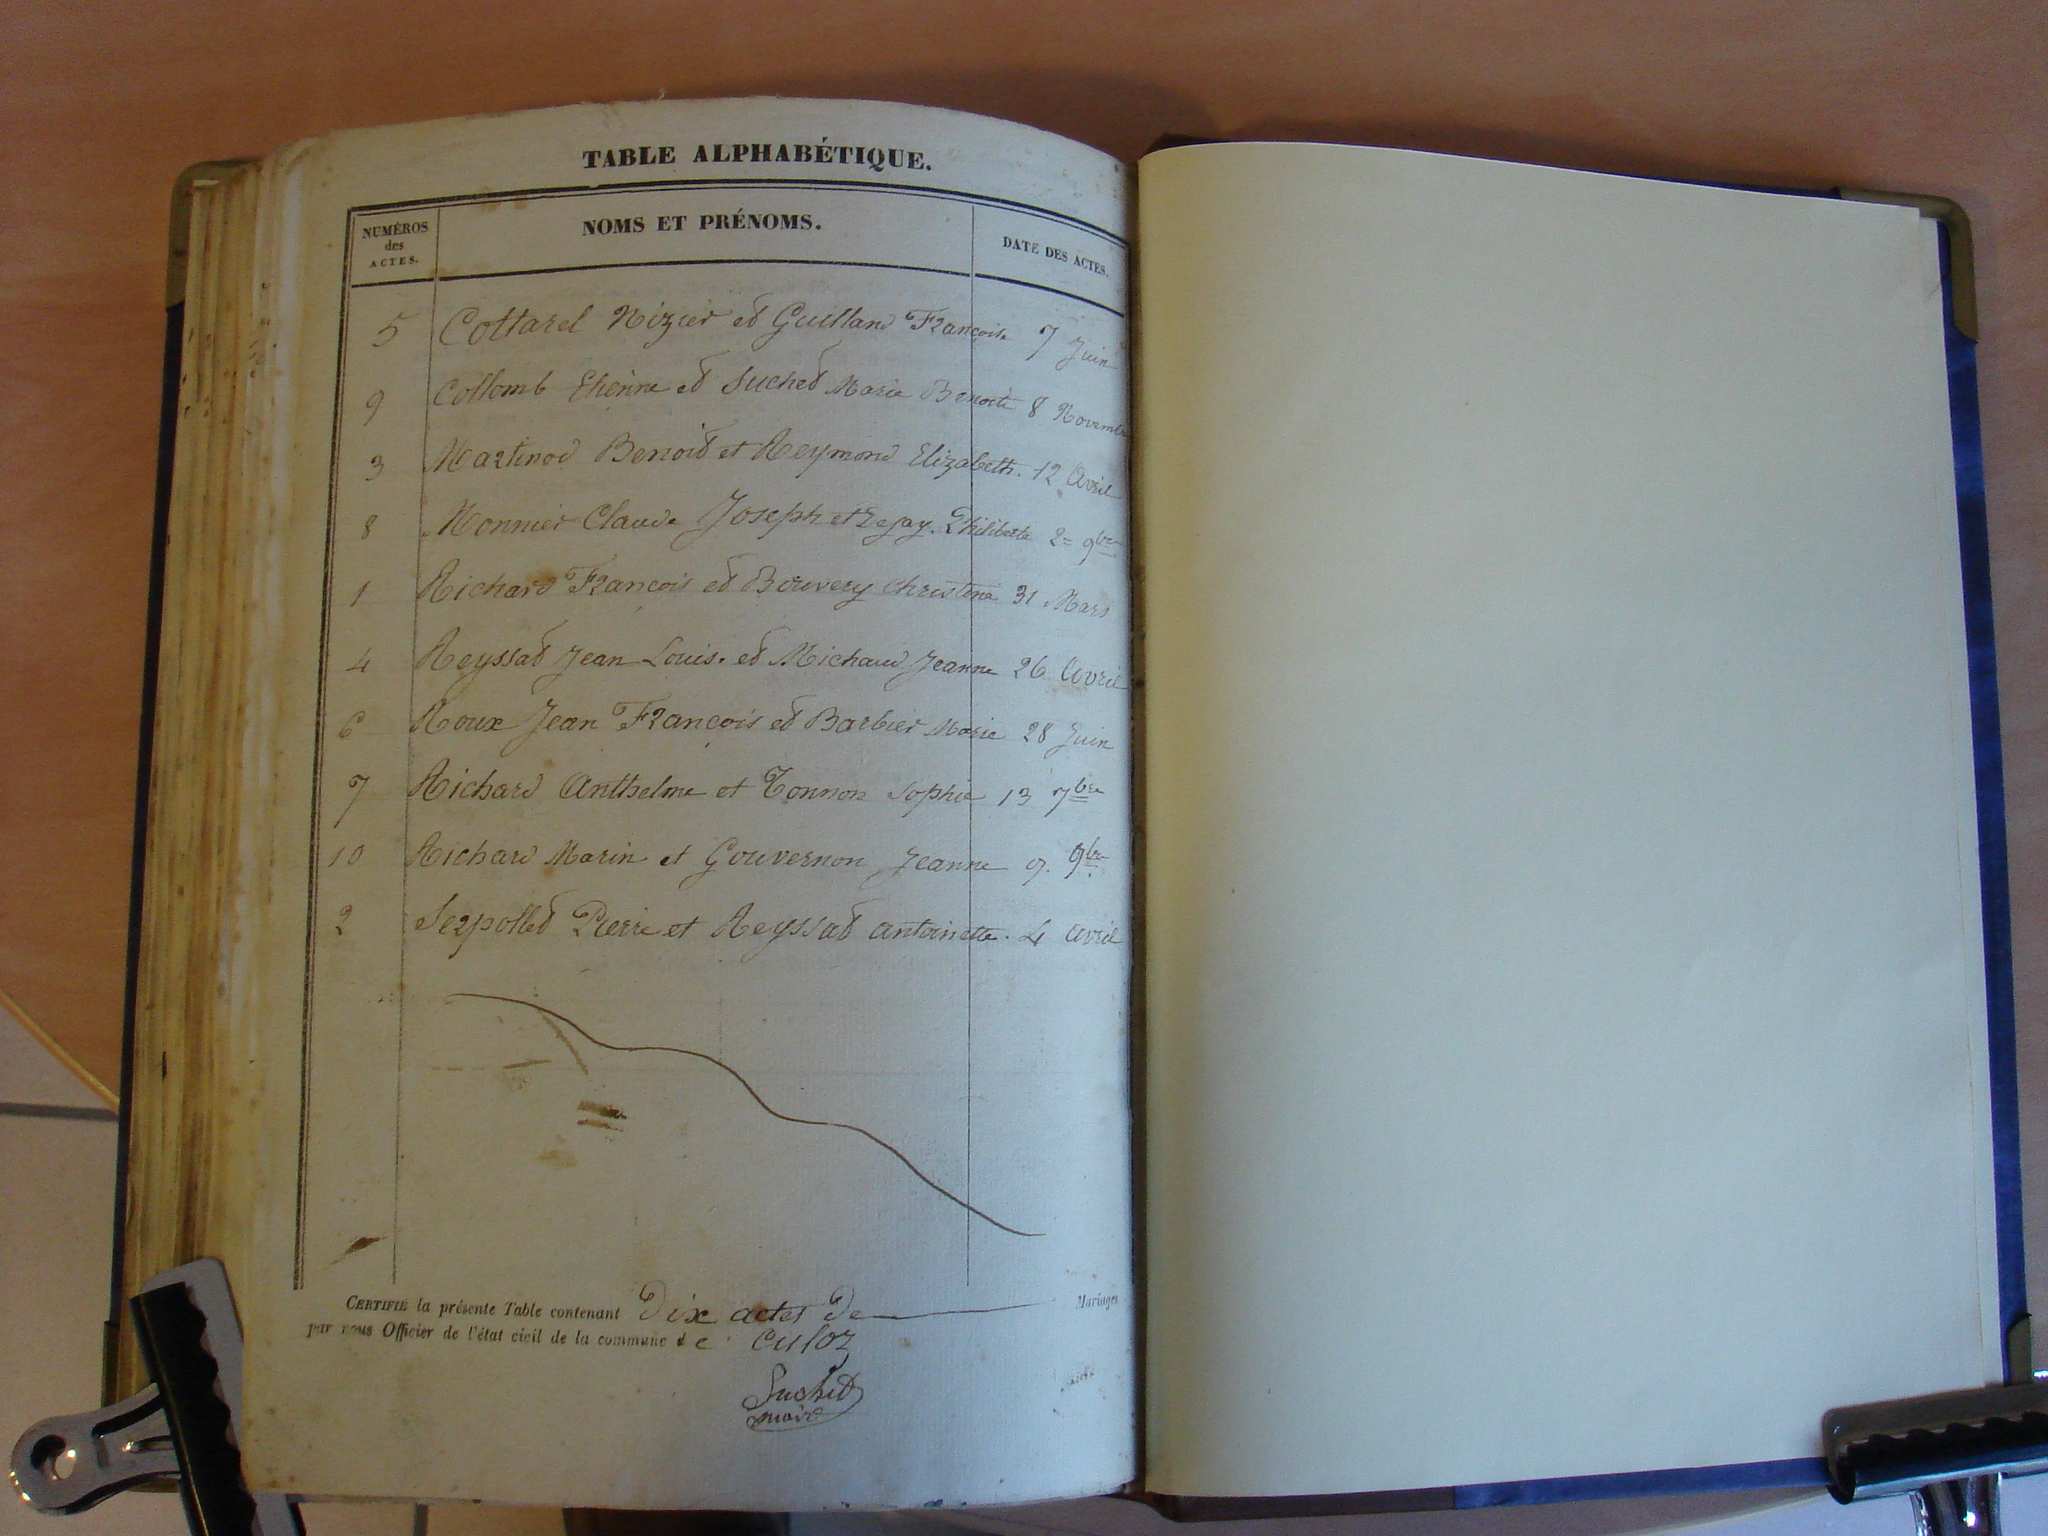 TABLE ALPHABÉTIQUE.
NUMÉROS des ACTES. NOMS ET PRÉNOMS. DATE DES ACTES.
5 Cottarel Nizier et Guilland Françoise 7 Juin
9 Collomb Etienne et Suchet Marie Benoite 8 Novembre
3 Martinod Benoit et Reymond Elizabeth. 12 Avril
8 Monnier Claude Joseph et Philiberte 2 = 9bre
1 Richard François et Bouvery Christine 31 Mars
4 Reyssat Jean Louis. et Michaud Jeanne 26 Avril
6 Roux Jean François et Barbier Marie 28 Juin
7 Richard Anthelme et Tonnon Sophie 13 7bre
10 Richard Marin et Gouvernon Jeanne 9. 9bre
2 Serpollet Pierre et Reyssat antoinette. 4 avril
CERTIFIÉ la présente Table contenant Dix actes De Mariages
par nous Officier de l'état civil de la commune de Culoz
Suchet
maire